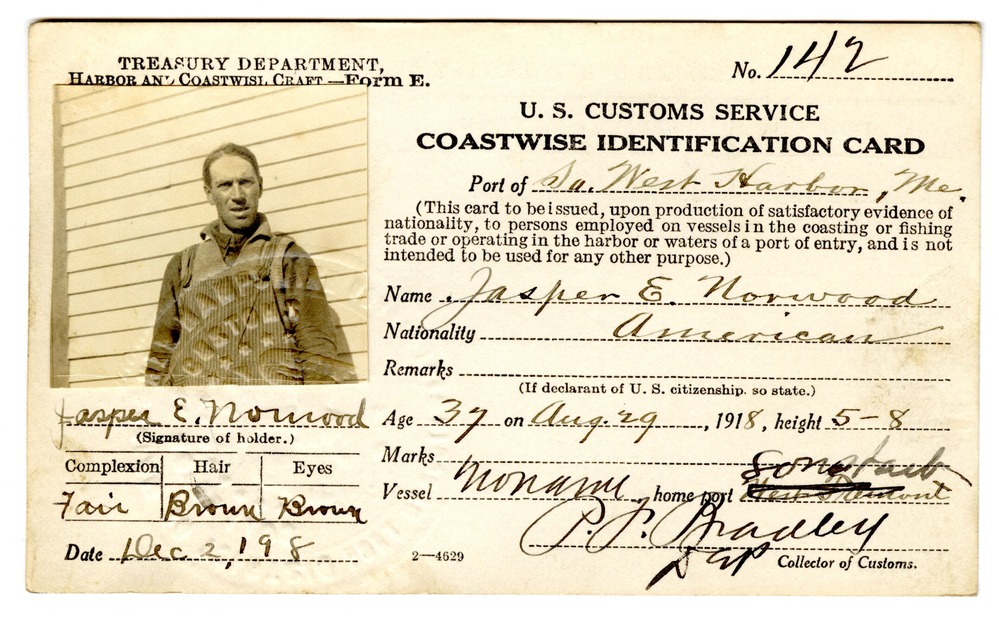 TREASURY DEPARTMENT,
HARBOR AND COASTWISE CRAFT—Form E.
No. 142
U. S. CUSTOMS SERVICE
COASTWISE IDENTIFICATION CARD
Port of So. West Harbor, Me.
(This card to be issued, upon production of satisfactory evidence of
nationality, to persons employed on vessels in the coasting or fishing
trade or operating in the harbor or waters of a port of entry, and is not
intended to be used for any other purpose.)
Name Jasper E. Norwood
Nationality American
Remarks
(If declarant of U. S. citizenship, so state.)
Age 37 on Aug. 29, 1918, height 5-8
Marks
Vessel Noname home port
P. F. Bradley
Collector of Customs.
Jasper E. Norwood
(Signature of holder.)
Complexion Hair Eyes
Fair Brown Brown
Date Dec 2, 198
2—4629